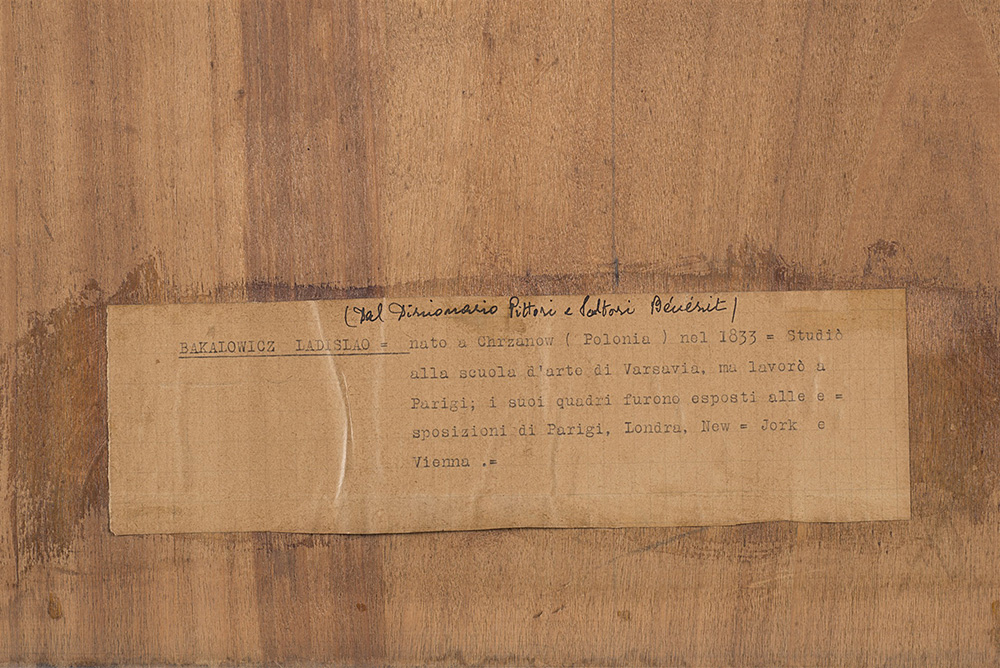 (Dal Dizionario Pittori e Scultori Bénézit)
BAKALOWICZ LADISLAO = nato a Chrzanow ( Polonia ) nel 1833 = Studiò
alla scuola d'arte di Varsavia, ma lavorò a
Parigi; i suoi quadri furono esposti alle e =
sposizioni di Parigi, Londra, New = Jork e
Vienna .=